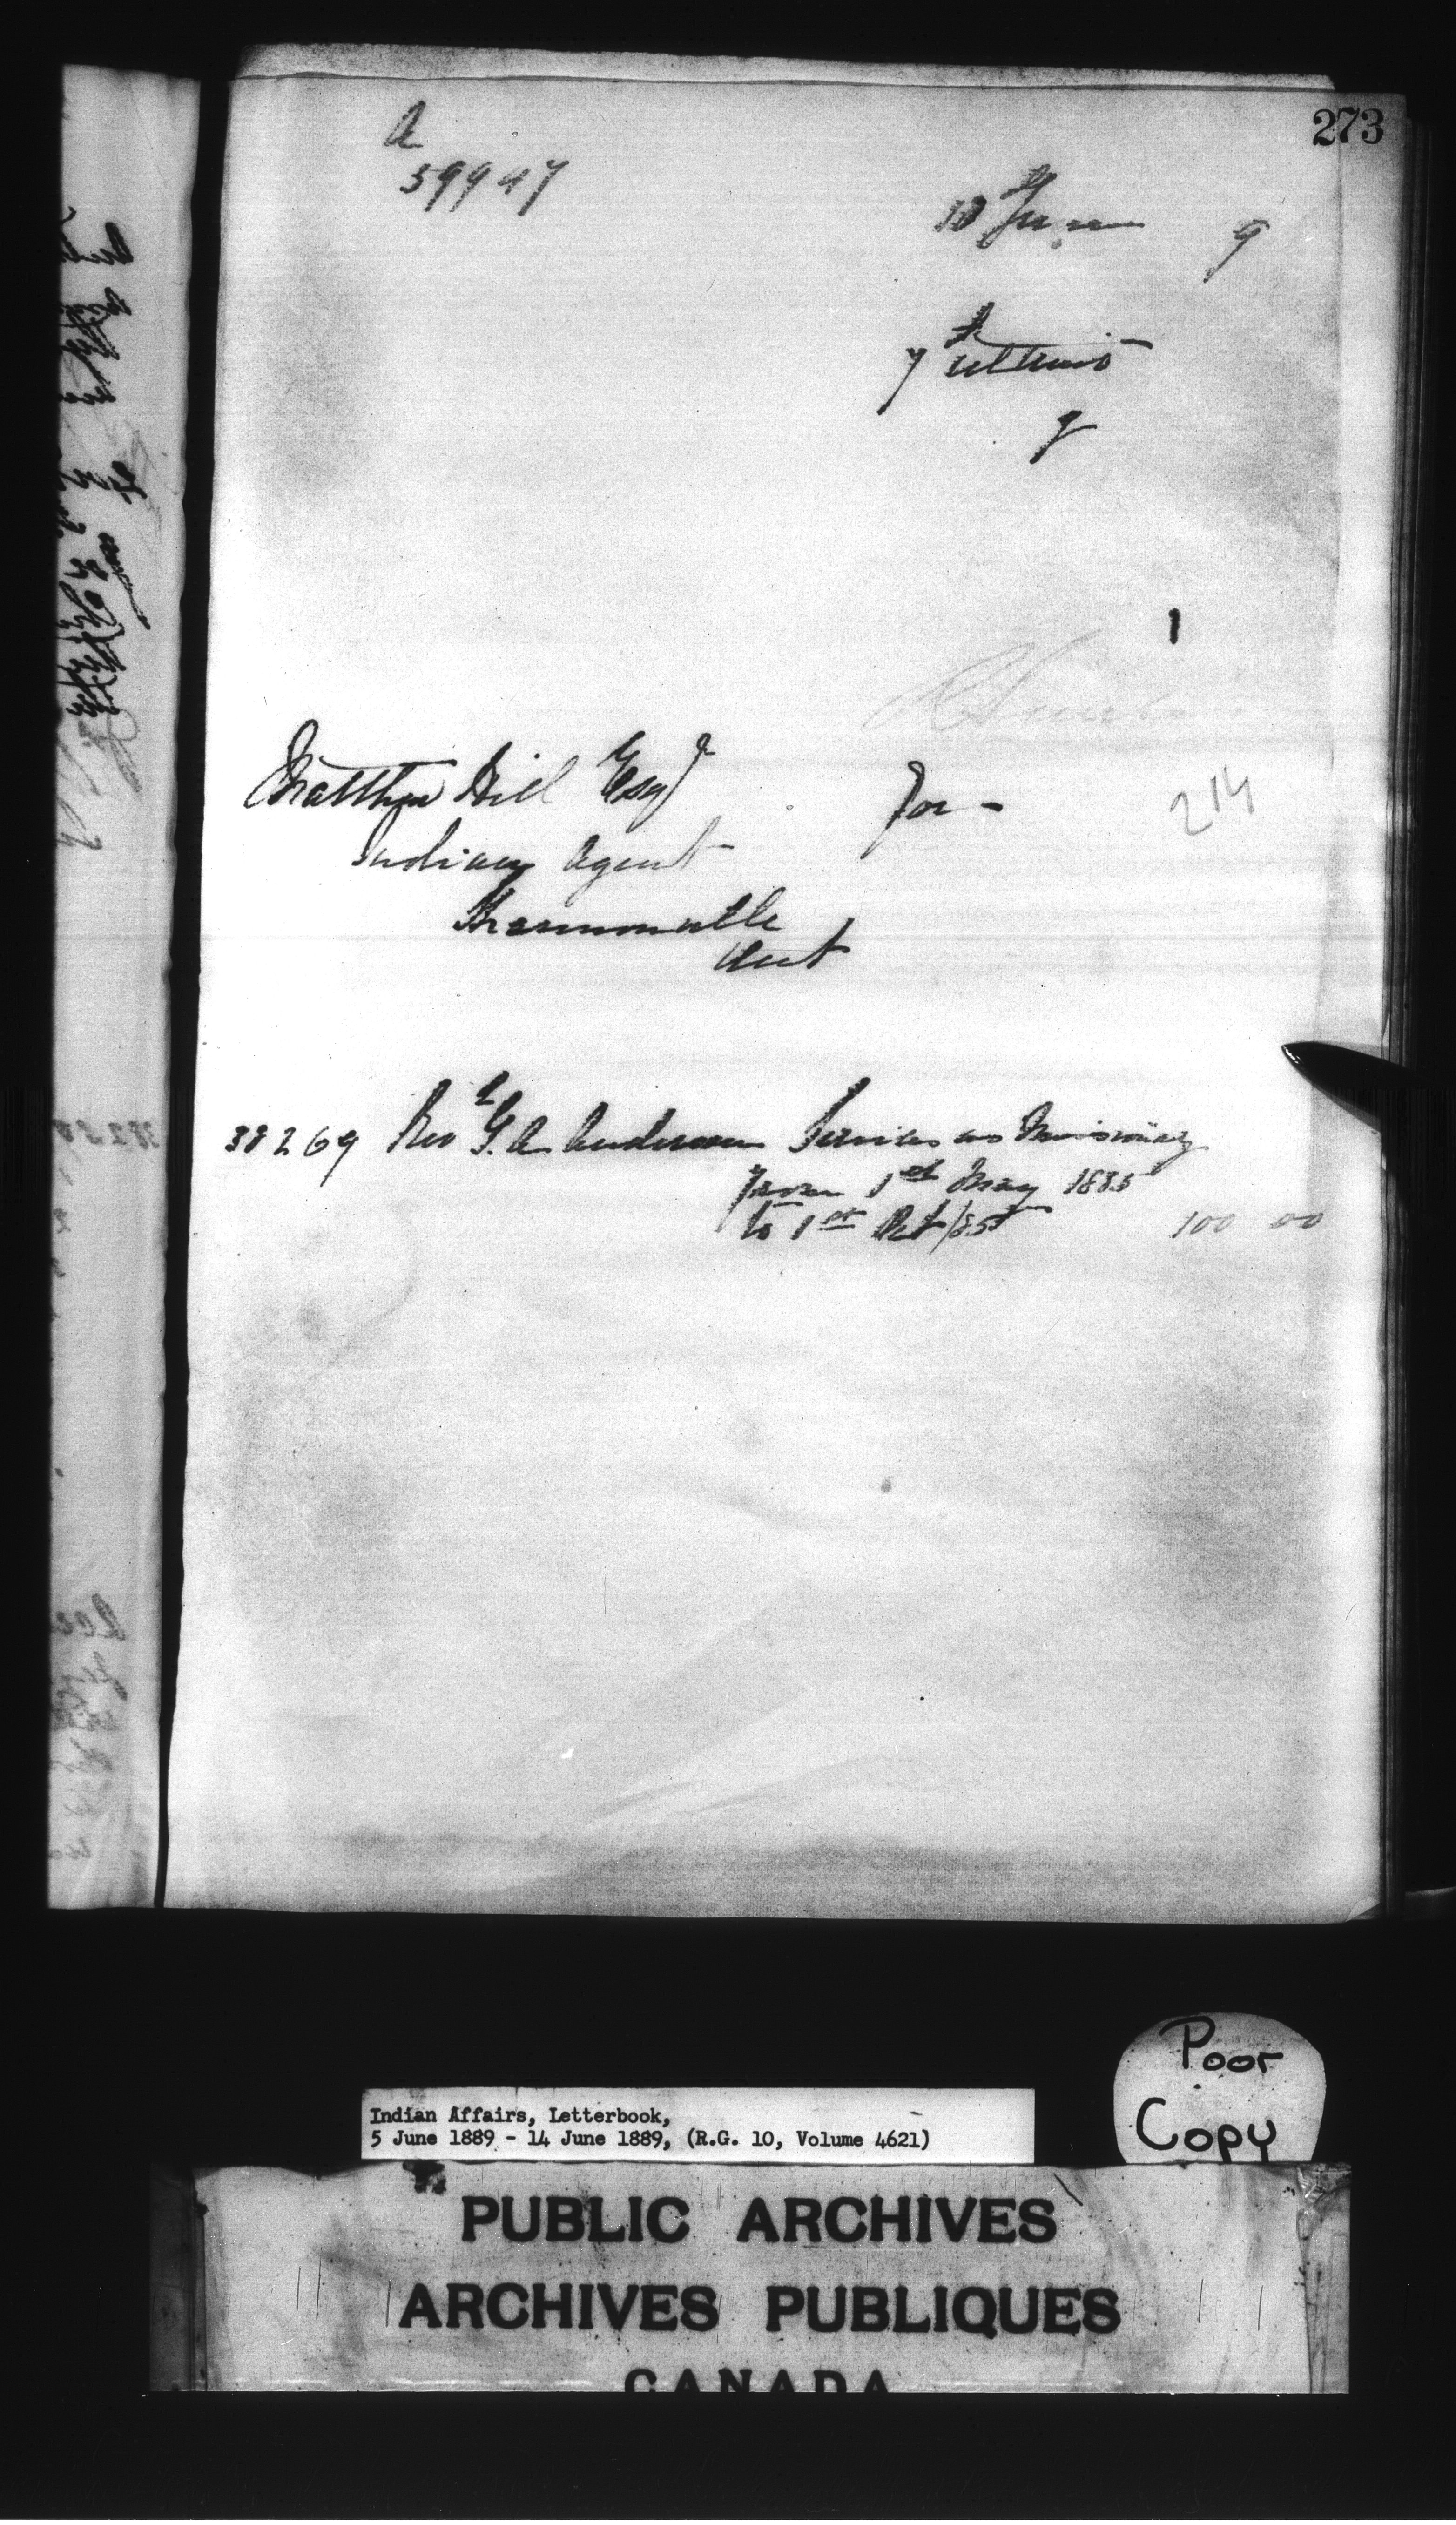 273
A
59947
10 June 9
7 ultimo
9
1
Matthew Hill Esqr
for -
214
Indian Agent
Shannonville
Ont
38269 Rev G. A. Anderson Services as Missionary
from 1st May 1885
to 1st Oct/85 100 00
Poor
Copy
Indian Affairs, Letterbook,
5 June 1889 - 14 June 1889, (R.G. 10, Volume 4621)
PUBLIC ARCHIVES
ARCHIVES PUBLIQUES
CANADA